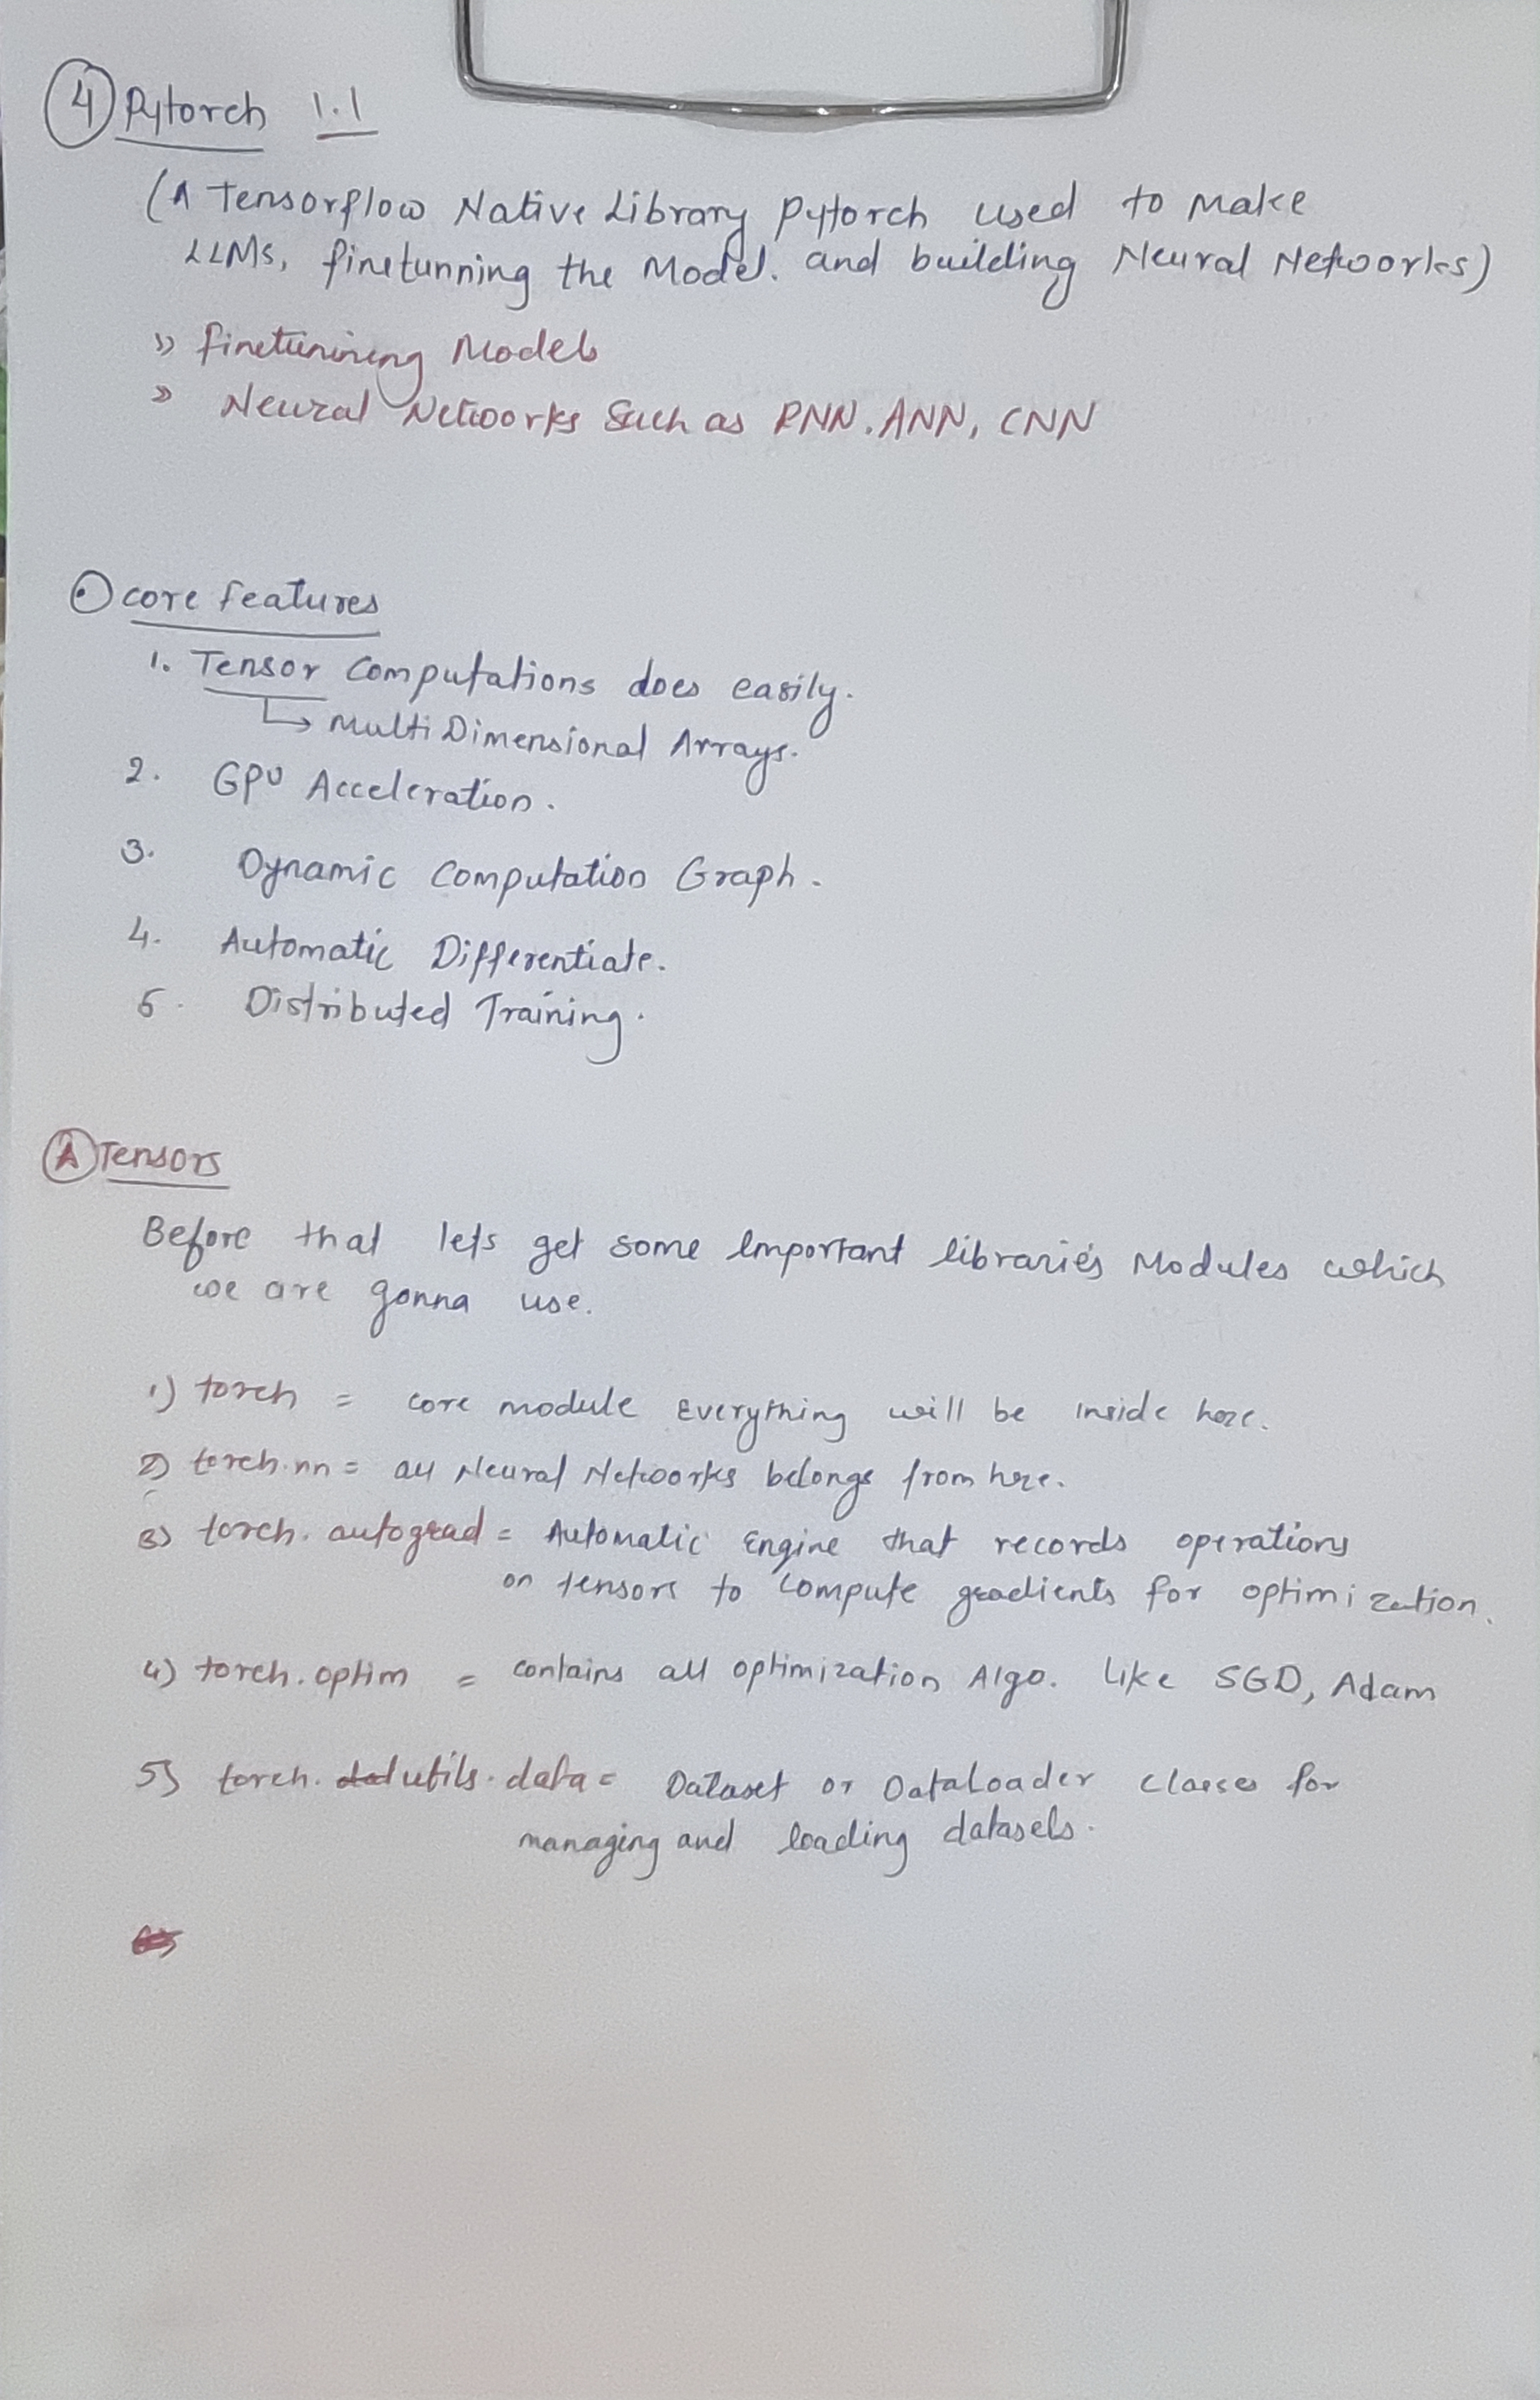 4 Pytorch 1.1
(A Tensorflow Native Library Pytorch used to make
LLMs, finetunning the Model. and building Neural Networks)
» finetunining Models
» Neural Networks Such as RNN, ANN, CNN
core features
1. Tensor Computations does easily.
↳ Multi Dimensional Arrays.
2. GPU Acceleration.
3. Dynamic Computation Graph.
4. Automatic Differentiate.
5. Distributed Training.
A Tensors
Before that lets get some Important libraries Modules which
we are gonna use.
1) torch = core module Everything will be inside here.
2) torch.nn = all Neural Networks belongs from here.
3) torch.autograd = Automatic Engine that records operations
on tensors to compute gradients for optimization.
4) torch.optim = contains all optimization Algo. like SGD, Adam
5) torch.utils.data = Dataset or DataLoader classes for
managing and loading datasets.